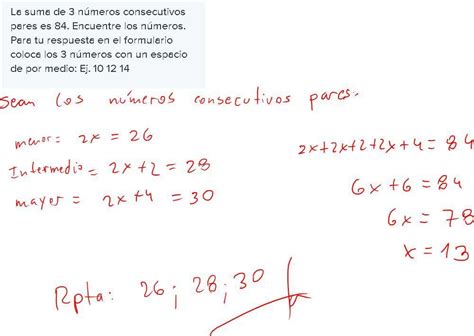 La suma de 3 números consecutivos
pares es 84. Encuentre los números.
Para tu respuesta en el formulario
coloca los 3 números con un espacio
de por medio: Ej. 10 12 14
Sean los números consecutivos pares.
menor = 2x = 26
Intermedio = 2x+2 = 28
mayor = 2x+4 = 30
2x+2x+2+2x+4 = 84
6x+6 = 84
6x = 78
x = 13
Rpta: 26; 28; 30